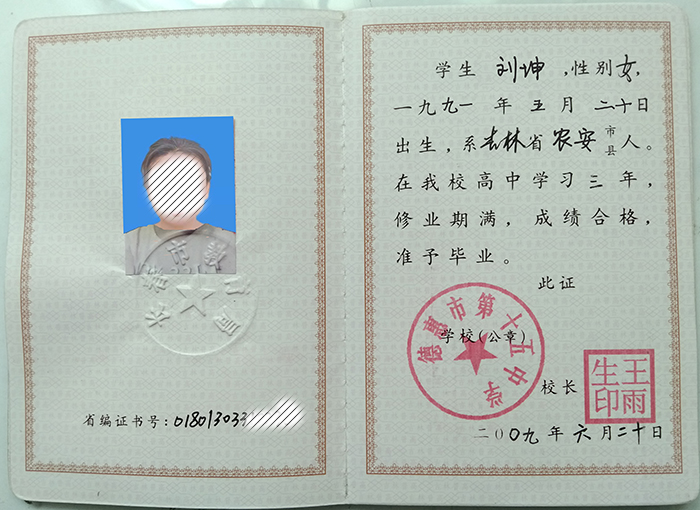 省编证书号：018013033
学生 刘坤 ，性别女，
一九九一 年 五 月 二十日
出生，系吉林省农安 市县 人。
在我校高中学习三年，
修业期满，成绩合格，
准予毕业。
此证
德惠市第十五中学
学校（公章）
校长
王雨生印
二〇〇九年 六 月二十日